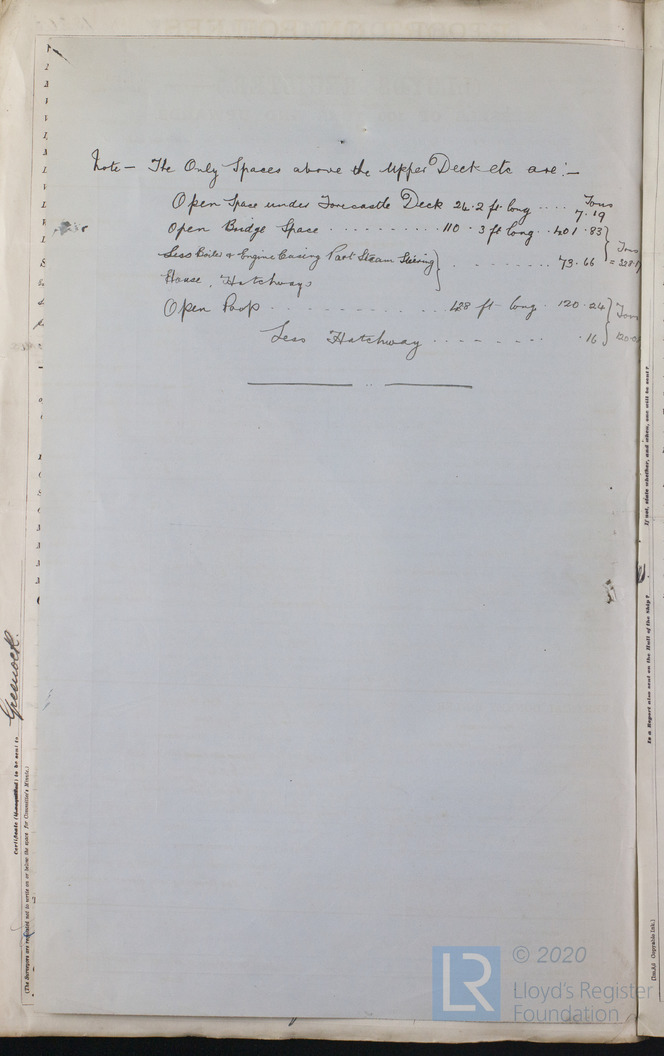 Note — The Only Spaces above the Upper Deck etc are:—
Tons
Open Space under Forecastle Deck 24.2 ft long .... 7.19
Open Bridge Space .......... 110.3 ft long .. 401.83
Less Boiler & Engine Casing Part Steam Steering ....... 73.66
Tons
House, Hatchways
Open Poop ............ 28 ft long . 120.24
Tons
Less Hatchway ........ .16
Greenock.
Certificate to be sent to
(The Surveyors are requested not to write on or below the space for Committee's Minute.)
If not, state whether, and when, one will be sent?
Is a Report also sent on the Hull of the Ship?
Copyable Ink.)
LR
© 2020
Lloyd's Register
Foundation